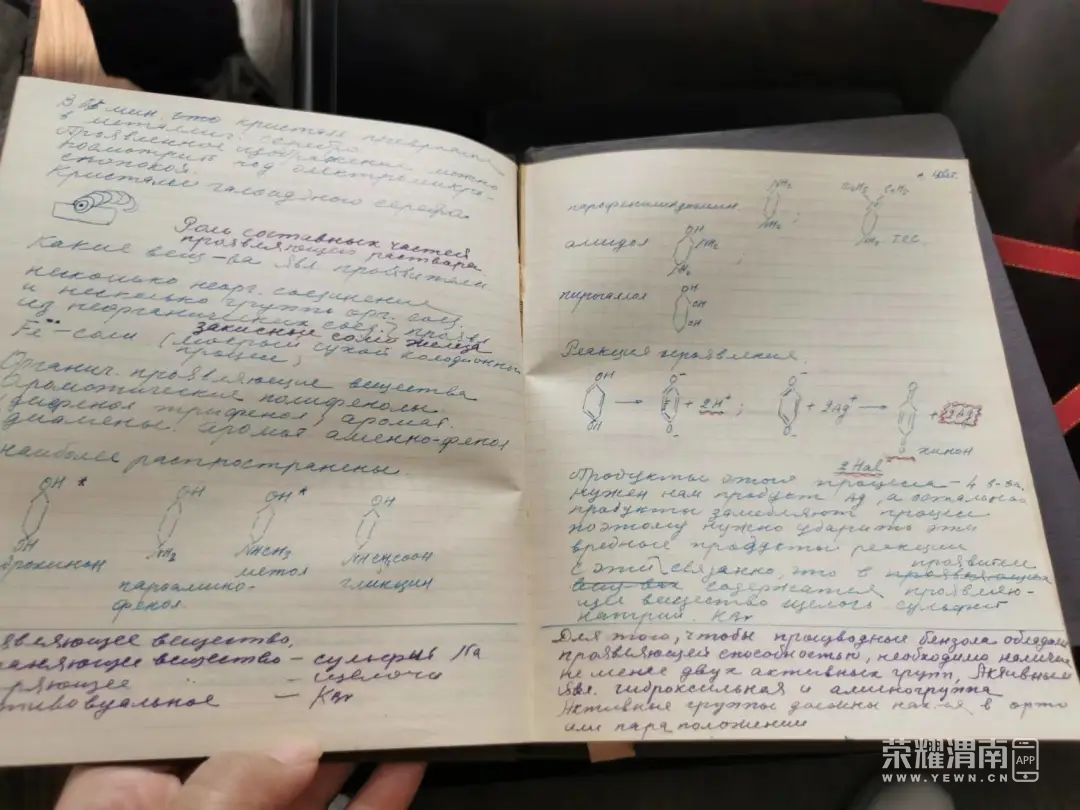 что кристалл
в металлич. серебро.
Проявленное изображение можно
посмотреть под электромикро-
скопом.
Кристалл галоидного серебра.
Роль составных частей
проявляющего раствора
Какие вещ-ва явл. проявители
несколько неорг. соединения
и несколько групп орг. соед.
из неорганических соед.
Fe - соли (
закисные соли железа
мокрый сухой колодионный
процесс)
Органич. проявляющие вещества
Ароматические полифенолы
(дифенол трифенол аромат.
диамены, аромат амено-фенол
наиболее распространены.
OH *
OH
дрохинон
OH
NH₂
парааамино-
фенол
OH *
NHCH₃
метол
OH
NHCH₂COOH
глицин
являющее вещество,
няющее вещество - сульфит Na
ряющее - щелочи
тивовуальное - KBr
парафенилендиамин.
NH₂
NH₂
;
C₂H₅
C₂H₅
NH₂
амидол
OH
NH₂
NH₂
пирогалол
OH
OH
OH
Реакция проявления.
OH
OH
→
O⁻
O⁻
+ 2H⁺ ;
O⁻
O⁻
+ 2Ag⁺ →
O
O
+ 2Ag
хинон
2 Hal
Продукты этого процесса - 4 в-ва.
Нужен нам продукт Ag, а остальные
продукты замедляют процесс
поэтому нужно убрать эти
вредные продукты реакции
С этим связанно, что в проявителе
содержатся проявляю-
щее вещество щелочь сульфит
натрий. KBr
Для того, чтобы производные бензола обладали
проявляющей способностью, необходимо наличие
не менее двух активных групп. Активным
явл. гидроксильная и аминогруппа
Активные группы должны нах-ся в орто
или пара положении
荣耀渭南
APP
WWW.YEWN.CN